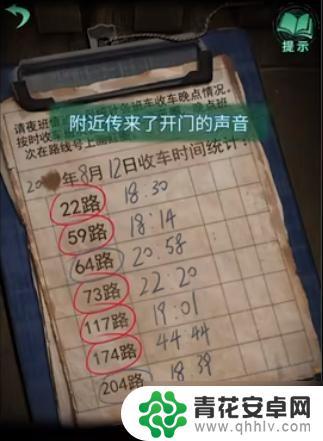 提示
请夜班值
各班车收车晚点情况。
按时收车
晚点班
次在路线号上画
附近传来了开门的声音
年8月12日收车时间统计：
22路 18:30
59路 18:14
64路 20:58
73路 22:20
117路 19:01
174路 44:44
204路 18:39
青花安卓网
www.qhhlv.com